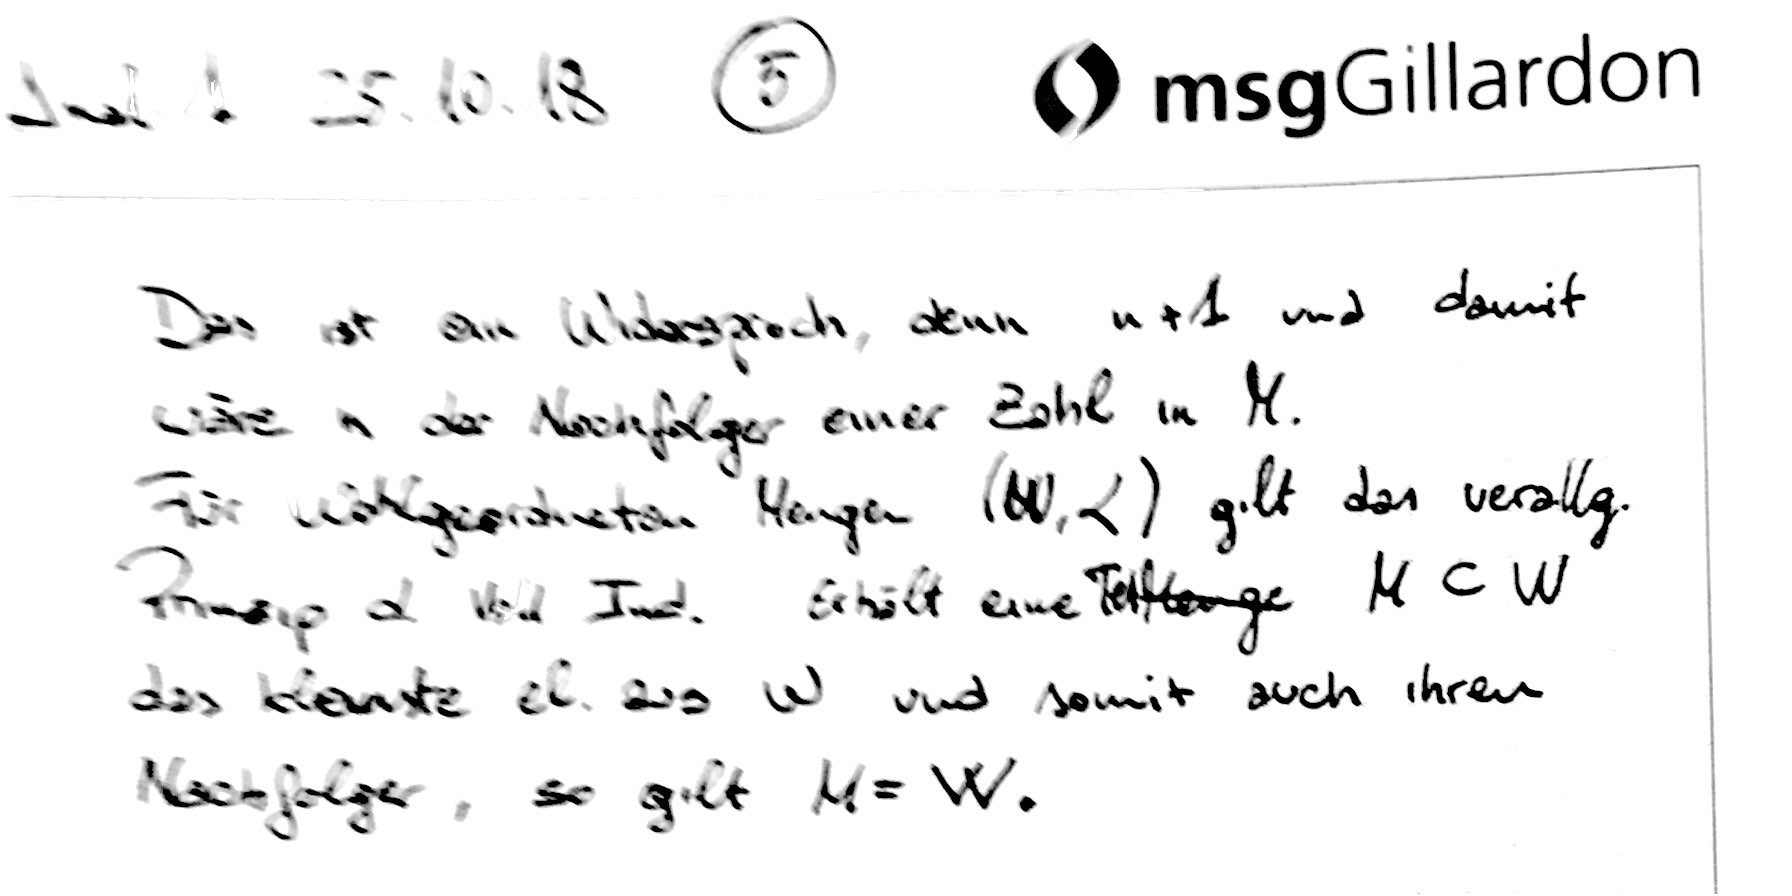 25.10.18 5 msgGillardon
Das ist ein Widerspruch, denn n+1 und damit
wäre n der Nachfolger einer Zahl in M.
Für wohlgeordneten Mengen (W,<) gilt das verallg.
Prinzip d Voll Ind. Erhält eine Teilmenge M ⊂ W
das kleinste el. aus W und somit auch ihren
Nachfolger, so gilt M = W.